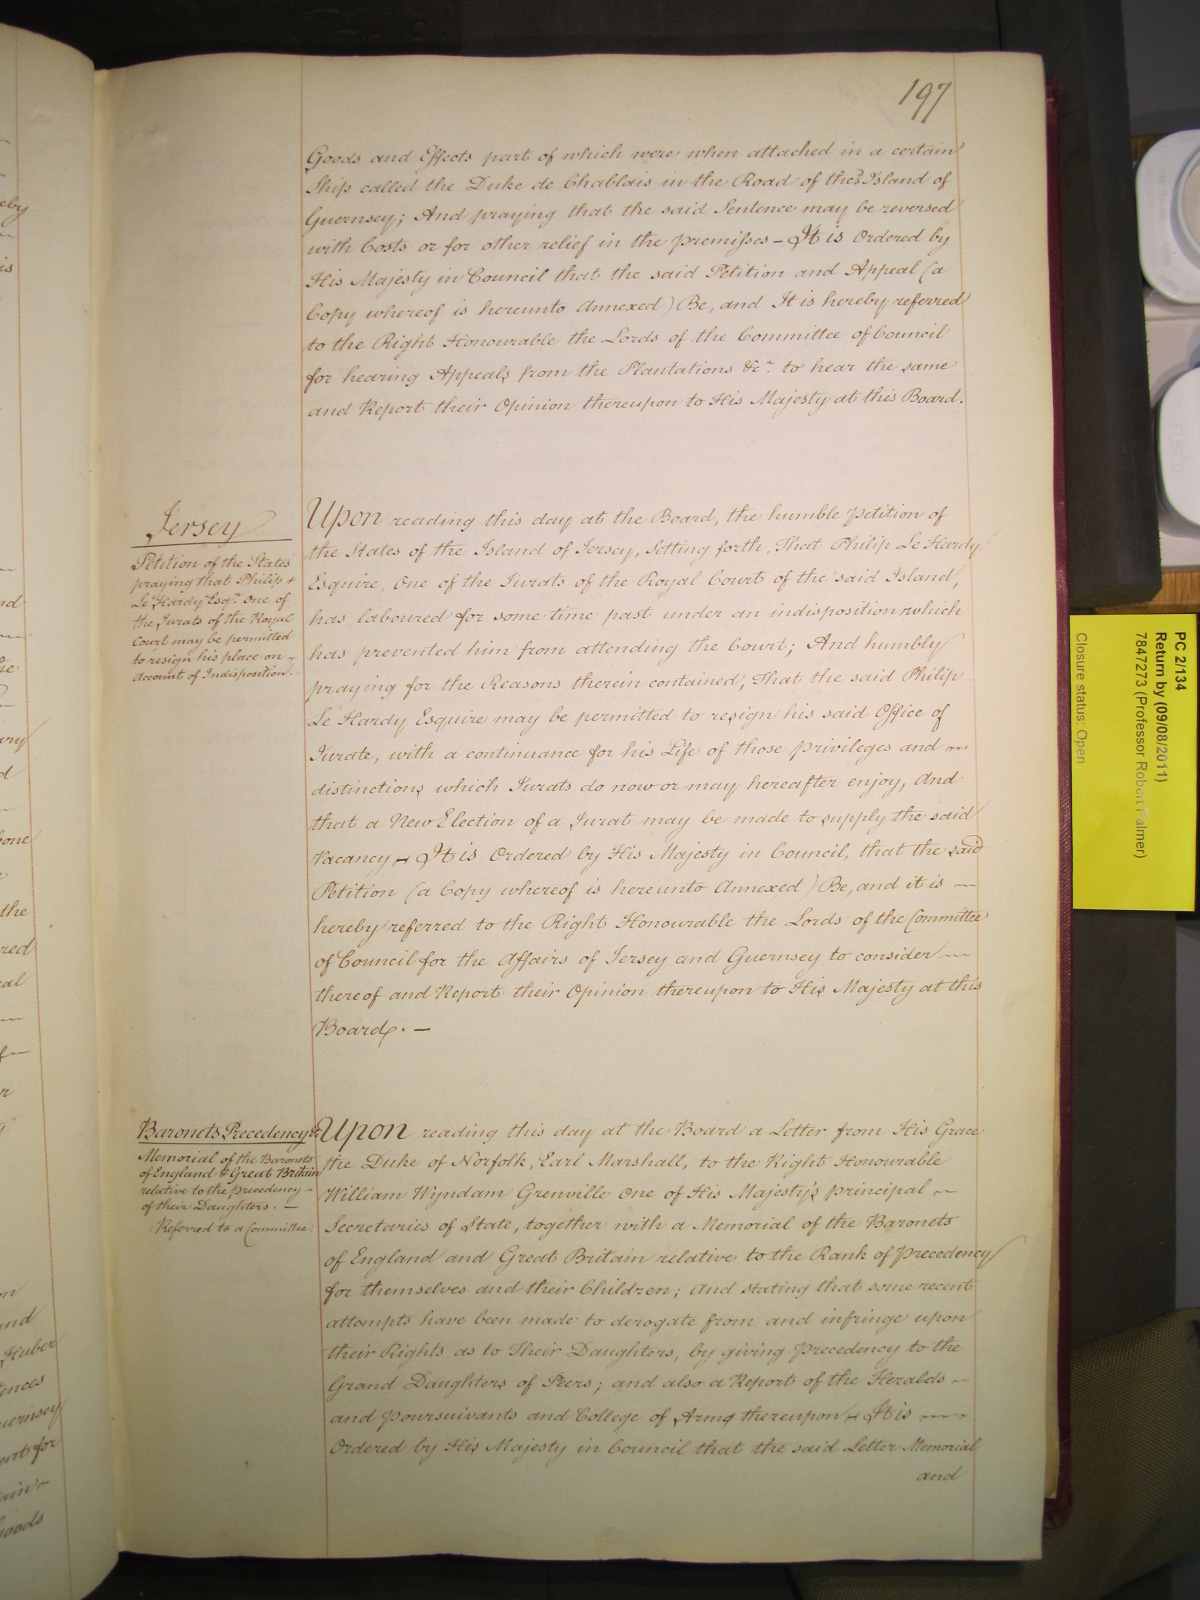 197
Goods and Effects part of which were when attached in a certain
Ship called the Duke de Chablais in the Road of the sd Island of
Guernsey; And praying that the said Sentence may be reversed
with Costs or for other relief in the premises – It is Ordered by
His Majesty in Council that the said Petition and Appeal (a
Copy whereof is hereunto Annexed) Be, and It is hereby referred
to the Right Honourable the Lords of the Committee of Council
for hearing Appeals from the Plantations &c. to hear the same
and Report their Opinion thereupon to His Majesty at this Board.
Jersey
Petition of the States
praying that Philip
Le Hardy Esqr. One of
the Jurats of the Royal
Court may be permitted
to resign his place on
account of Indisposition.
Upon reading this day at the Board, the humble Petition of
the States of the Island of Jersey, Setting forth, That Philip Le Hardy
Esquire, One of the Jurats of the Royal Court of the said Island,
has laboured for some time past under an indisposition which
has prevented him from attending the Court; And humbly
praying for the Reasons therein contained, That the said Philip
Le Hardy Esquire may be permitted to resign his said Office of
Jurate, with a continuance for his Life of those privileges and
distinctions which Jurats do now or may hereafter enjoy, And
that a New Election of a Jurat may be made to supply the said
Vacancy – It is Ordered by His Majesty in Council, that the said
Petition (a Copy whereof is hereunto Annexed) Be, and it is –
hereby referred to the Right Honourable the Lords of the Committee
of Council for the Affairs of Jersey and Guernsey to consider
thereof and Report their Opinion thereupon to His Majesty at this
Board. –
Baronets Precedency
Memorial of the Baronets
of England & Great Britain
relative to the precedency
of their Daughters. –
Referred to a Committee.
Upon reading this day at the Board a Letter from His Grace
the Duke of Norfolk, Earl Marshall, to the Right Honourable
William Wyndam Grenville one of His Majesty's principal
Secretaries of State, together with a Memorial of the Baronets
of England and Great Britain relative to the Rank of Precedency
for themselves and their Children; And stating that some recent
attempts have been made to derogate from and infringe upon
their Rights as to Their Daughters, by giving Precedency to the
Grand Daughters of Peers; and also a Report of the Heralds
and poursuivants and College of Arms thereupon – It is
Ordered by His Majesty in Council that the said Letter Memorial
and
PC 2/134
Return by (09/08/2011)
7847273 (Professor Robert Palmer)
Closure status: Open